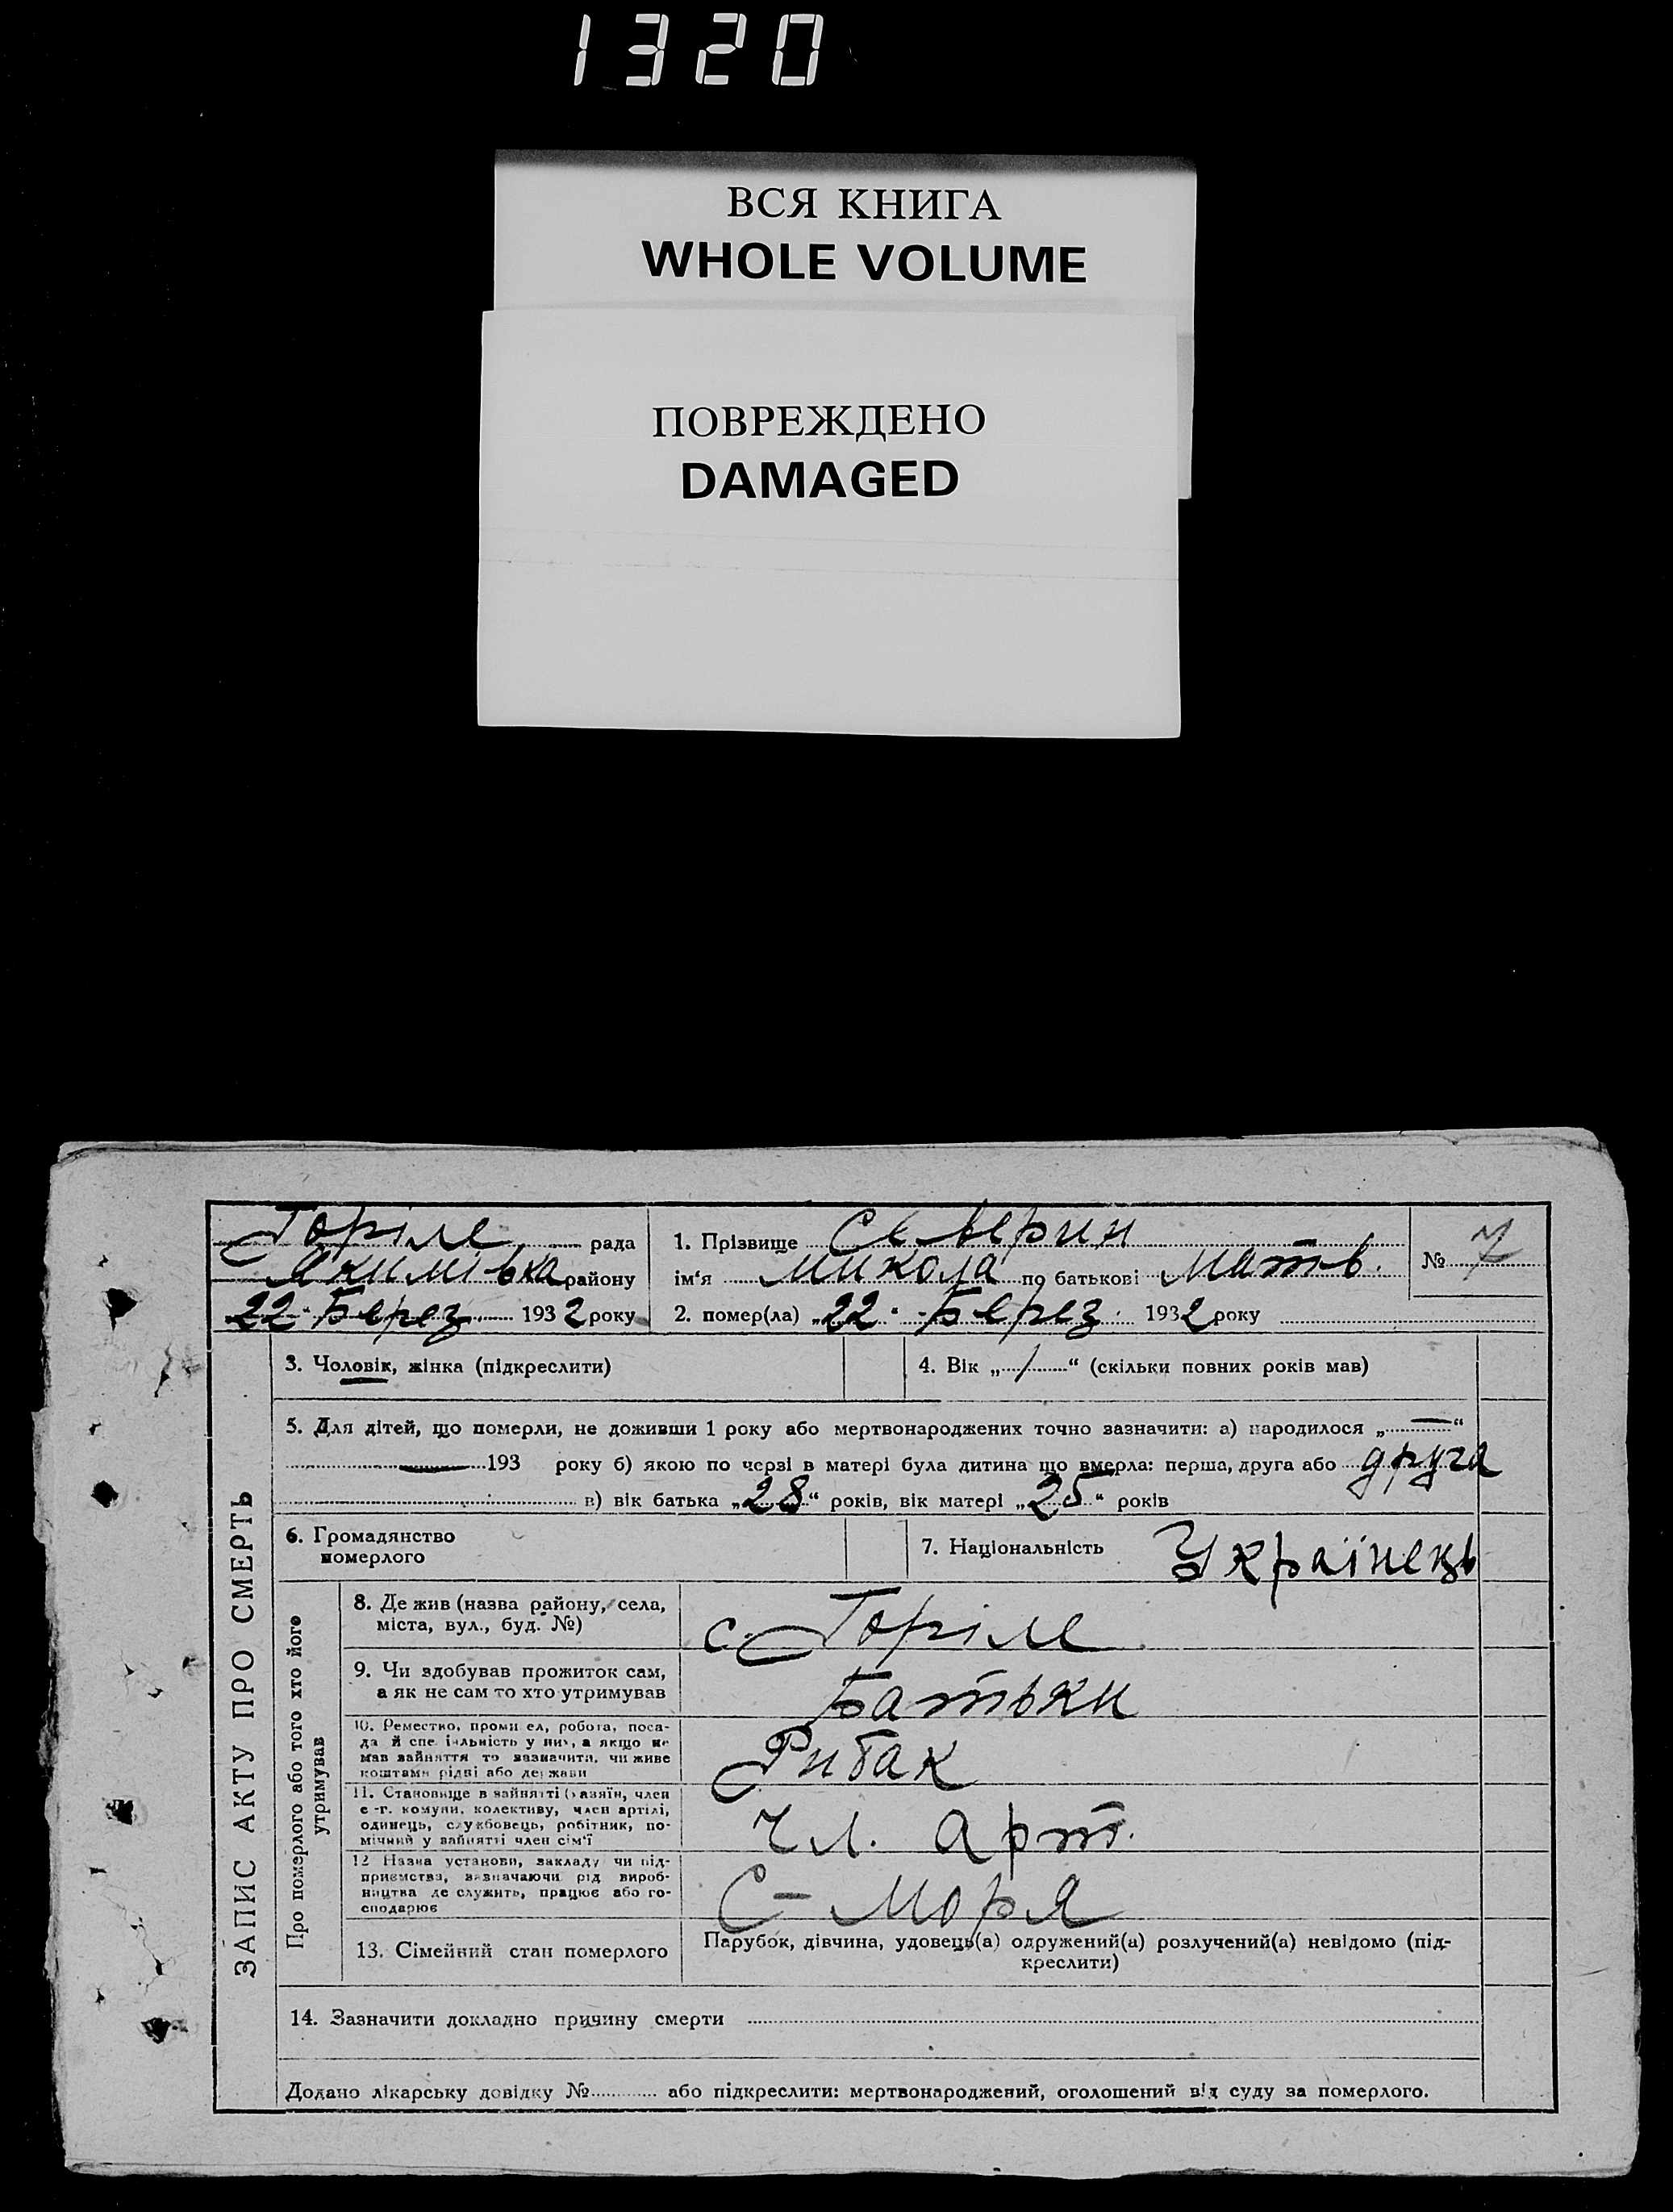 1320
ВСЯ КНИГА
WHOLE VOLUME
ПОВРЕЖДЕНО
DAMAGED
Горіле рада
Якимівка району
22 Берез 1932 року
1. Прізвище Северин
ім'я Микола по батькові Матв.
2. помер(ла) „22. Берез. 1932 року
№ 7
ЗАПИС АКТУ ПРО СМЕРТЬ
3. Чоловік, жінка (підкреслити)
4. Вік „1“ (скільки повних років мав)
5. Для дітей, що померли, не доживши 1 року або мертвонароджених точно зазначити: а) народилося „—“
— 193 року б) якою по черзі в матері була дитина що вмерла: перша, друга або друга
в) вік батька „28“ років, вік матері „25“ років
6. Громадянство
померлого
7. Національність Українець
Про померлого або того хто його
утримував
8. Де жив (назва району, села,
міста, вул., буд. №)
с. Горіле
9. Чи здобував прожиток сам,
а як не сам то хто утримував
Батьки
10. Ремество, промисел, робота, поса-
да й спеціальність у них, а якщо не
мав зайняття то зазначити, чи живе
коштами рідні або держави
Рибак
11. Становище в зайнятті (хазяїн, член
с.-г. комуни, колективу, член артілі,
одинець, службовець, робітник, по-
мічний у зайнятті член сім'ї
Чл. арт.
12 Назва установи, закладу чи під-
приємства, зазначаючи рід вироб-
ництва де служить, працює або го-
сподарює
С- Моря
13. Сімейний стан померлого
Парубок, дівчина, удовець(а) одружений(а) розлучений(а) невідомо (під-
креслити)
14. Зазначити докладно причину смерти
Додано лікарську довідку № або підкреслити: мертвонароджений, оголошений від суду за померлого.